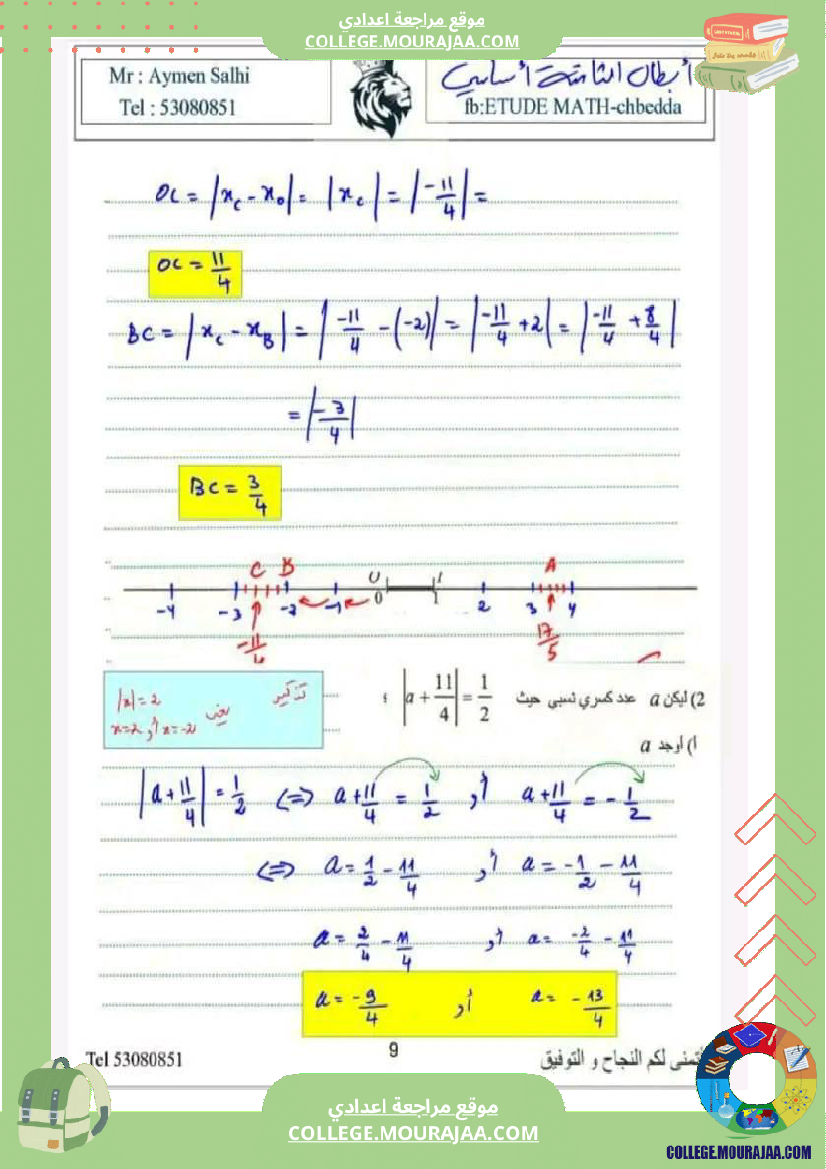 موقع مراجعة اعدادي
COLLEGE.MOURAJAA.COM
Mr : Aymen Salhi
Tel : 53080851
أبطال الثامنة أساسي
fb:ETUDE MATH-chbedda
OC = |x_C - x_O| = |x_C| = |-11/4| =
OC = 11/4
BC = |x_C - x_B| = |-11/4 - (-2)| = |-11/4 + 2| = |-11/4 + 8/4|
= |-3/4|
BC = 3/4
C B O I A
-4 -3 -2 -1 0 1 2 3 4
-11/4 17/5
2) ليكن a عدد كسري نسبي حيث |a + 11/4| = 1/2 ؛
تذكير
|x| = 2 يعني
x=2 أو x=-2
أ) أوجد a
|a + 11/4| = 1/2 ⟺ a + 11/4 = 1/2 أو a + 11/4 = -1/2
⟺ a = 1/2 - 11/4 أو a = -1/2 - 11/4
a = 2/4 - 11/4 أو a = -2/4 - 11/4
a = -9/4 أو a = -13/4
Tel 53080851
9
أتمنى لكم النجاح و التوفيق
موقع مراجعة اعدادي
COLLEGE.MOURAJAA.COM
COLLEGE.MOURAJAA.COM